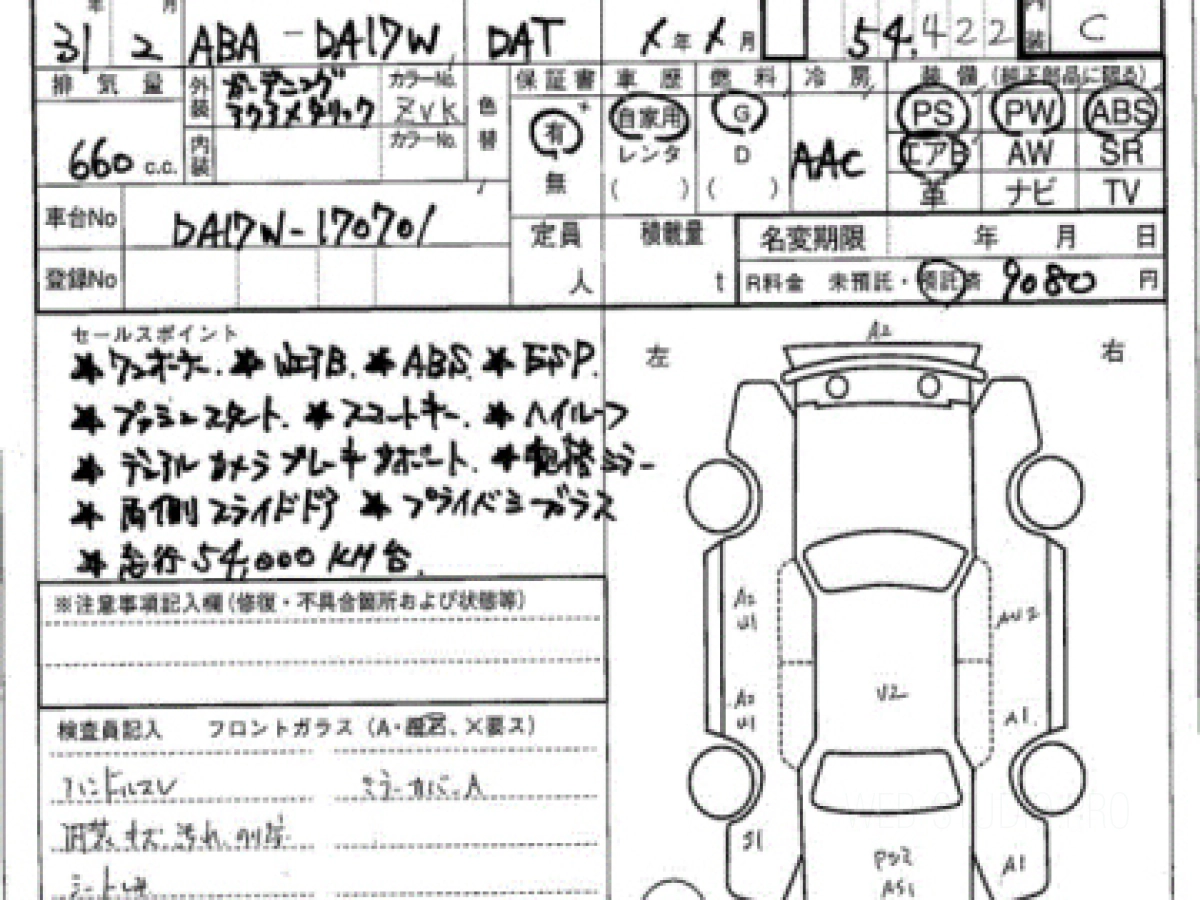 年 月 内装
31 2 ABA-DA17W DAT 年 月 54,422 C
排気量 外装 ガーデニングアクアメタリック カラーNo. ZVK 色替 保証書 車歴 燃料 冷房 装備 (純正部品に限る)
660 c.c. 内装 カラーNo. 有 無 自家用 レンタ ( ) G D ( ) AAC PS PW ABS
エアB AW SR
革 ナビ TV
車台No DA17W-170701 定員 人 積載量 t 名変期限 年 月 日
登録No R料金 未預託・預託済 9080 円
セールスポイント
★ワンオーナー. ★W エアB. ★ABS. ★ESP.
★プッシュスタート. ★スマートキー. ★ハイルーフ
★デュアルカメラブレーキサポート. ★電格ミラー
★両側スライドドア ★プライバシーガラス
★走行54,000KM台.
※注意事項記入欄(修復・不具合箇所および状態等)
検査員記入 フロントガラス (A・、X要ス)
ハンドルスレ ミラーカバーA
内装キズ、汚れ、
シート
左 右
A2
A2
U1
AU2
A2
U1
U2
A1
S1
A1